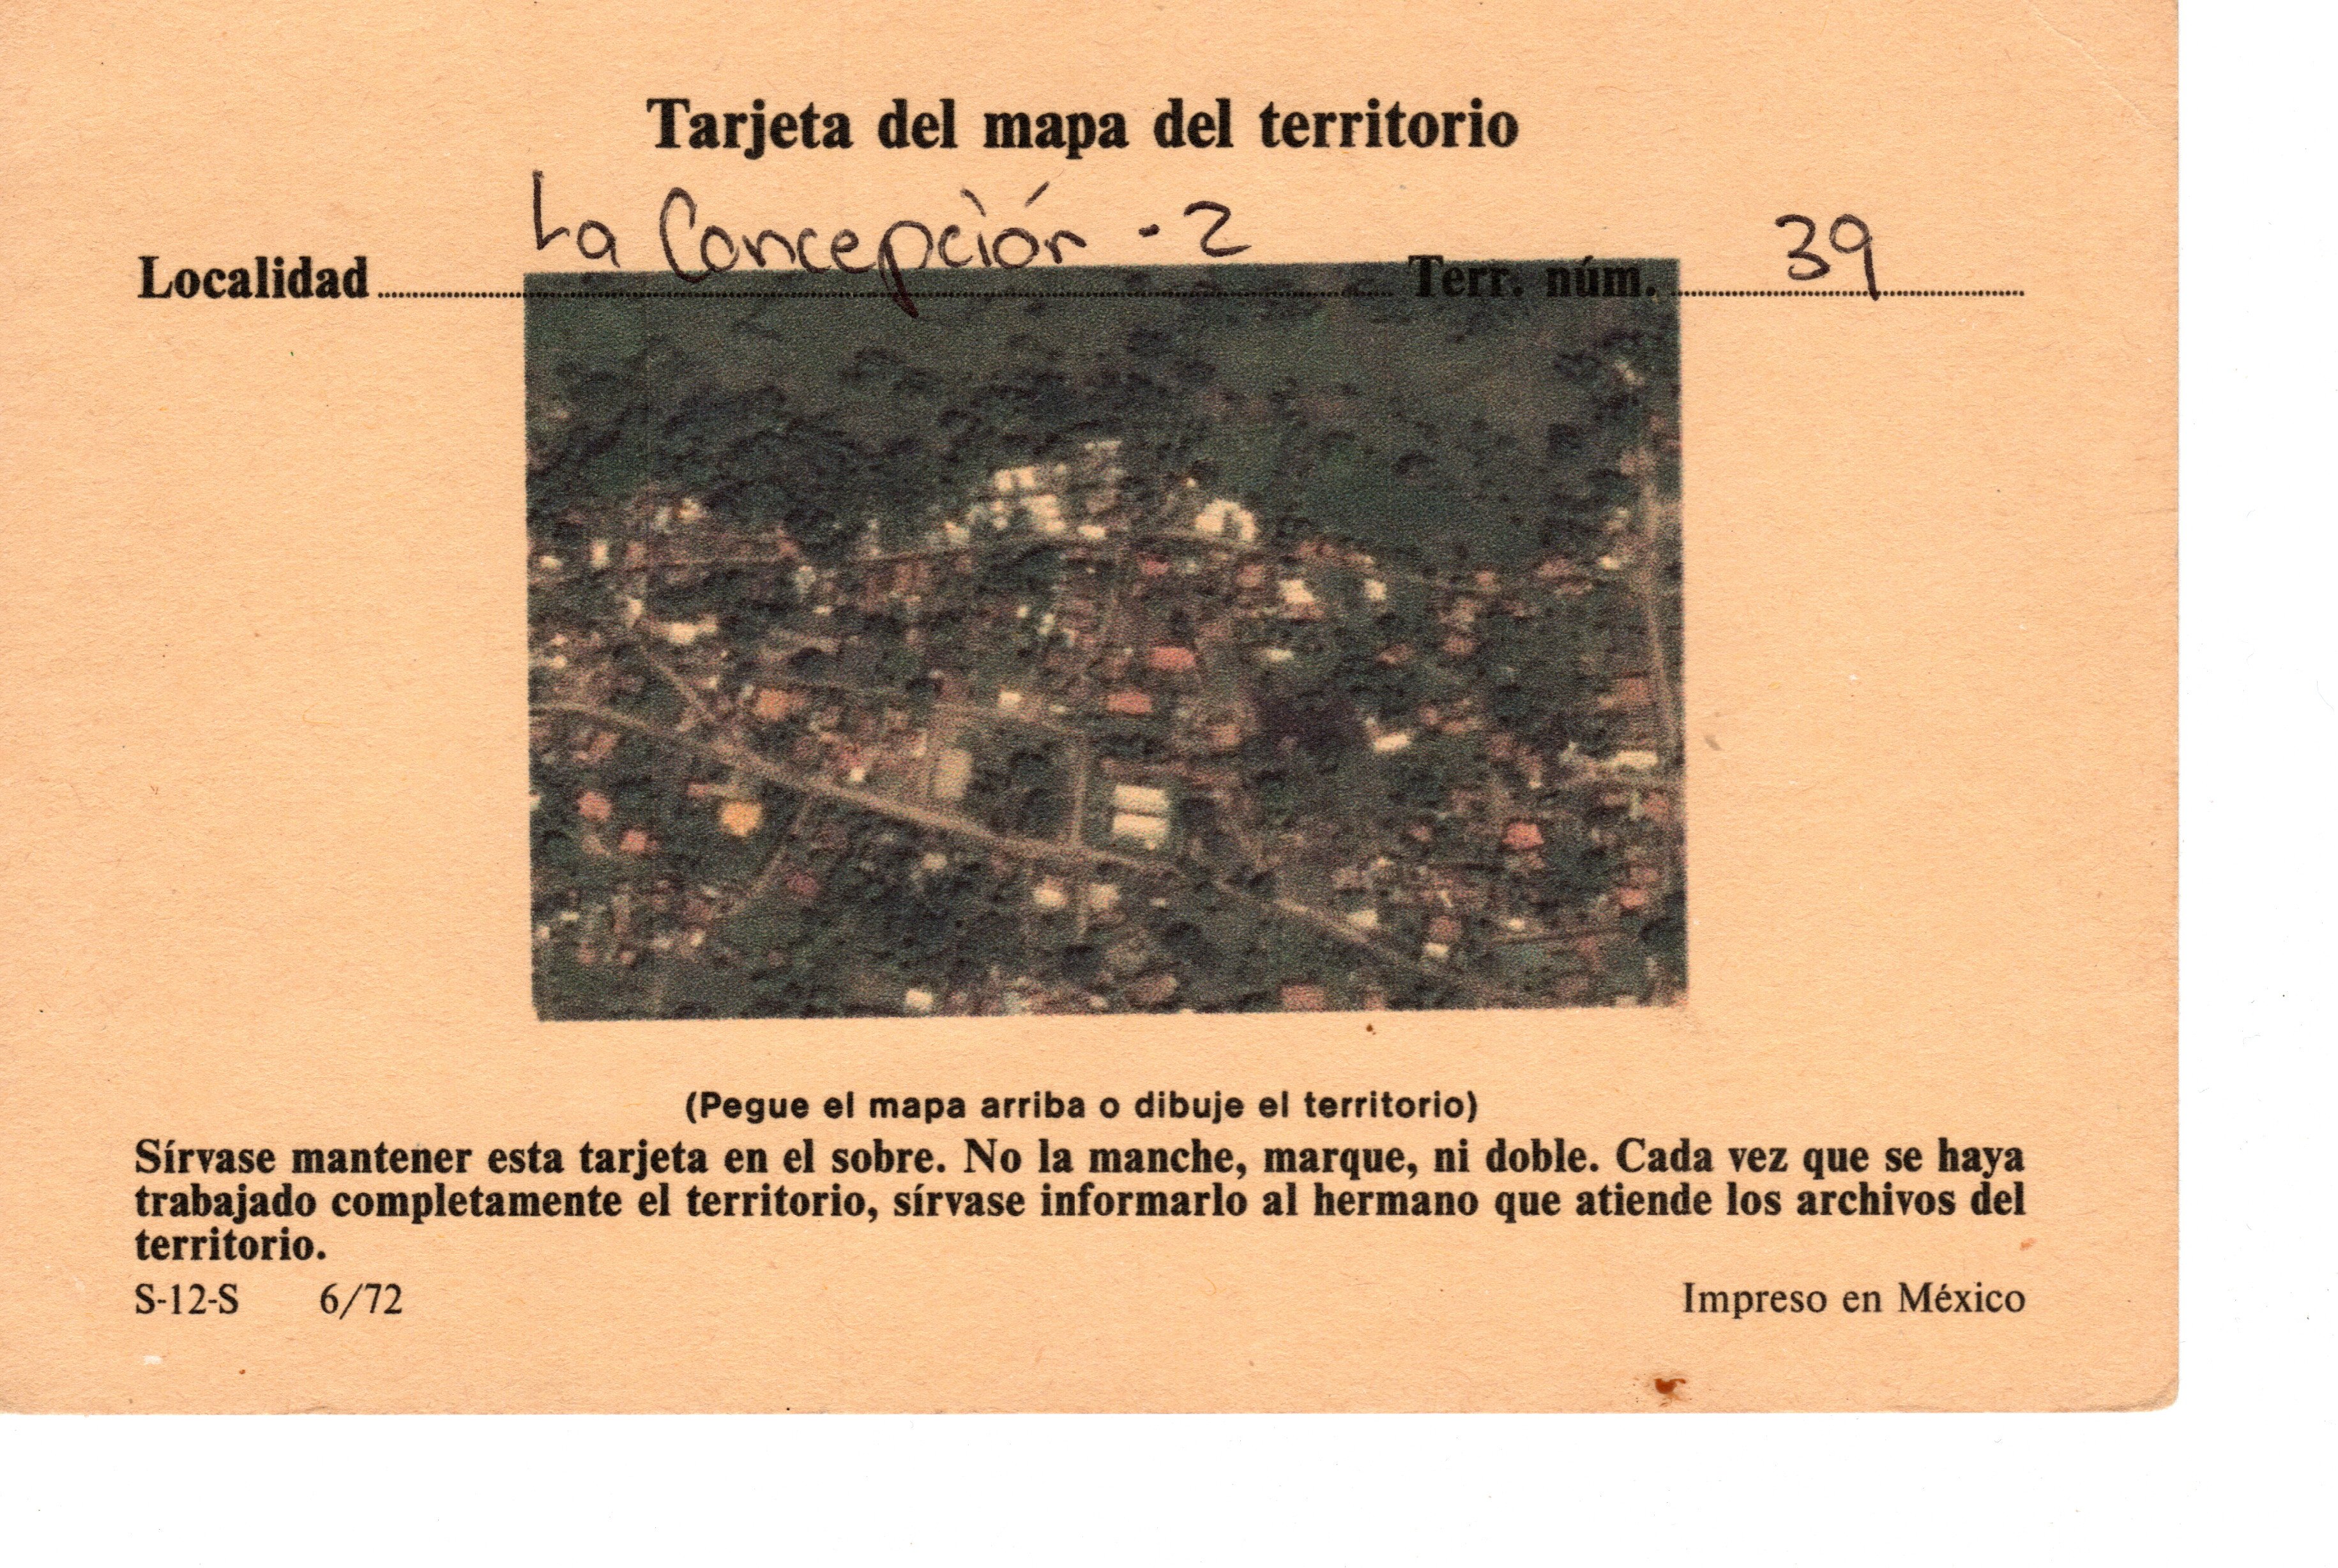 Tarjeta del mapa del territorio
Localidad La Concepción - 2 Terr. núm. 39
(Pegue el mapa arriba o dibuje el territorio)
Sírvase mantener esta tarjeta en el sobre. No la manche, marque, ni doble. Cada vez que se haya
trabajado completamente el territorio, sírvase informarlo al hermano que atiende los archivos del
territorio.
S-12-S 6/72 Impreso en México